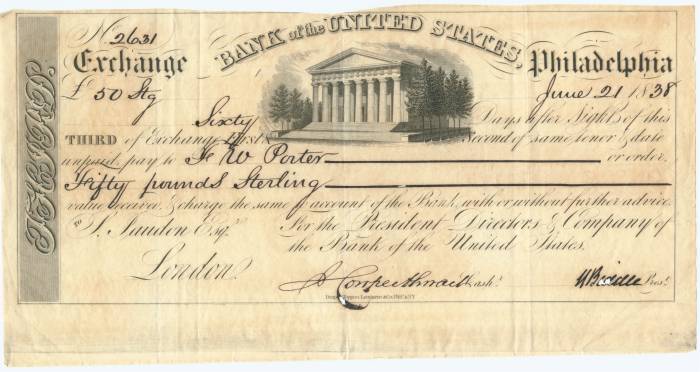 No 2631
BANK of the UNITED STATES,
Exchange Philadelphia
£ 50 Stg June 21 1838
Sixty Days after Sight of this
THIRD of Exchange First & Second of same tenor & date
unpaid, pay to W Porter or order,
Fifty pounds Sterling
value received & charge the same to account of the Bank, with or without further advice.
To S. Jaudon Esqr. For the President Directors & Company of
the Bank of the United States.
London
J Cowperthwait Cashr. N Biddle Prest.
THIRD.